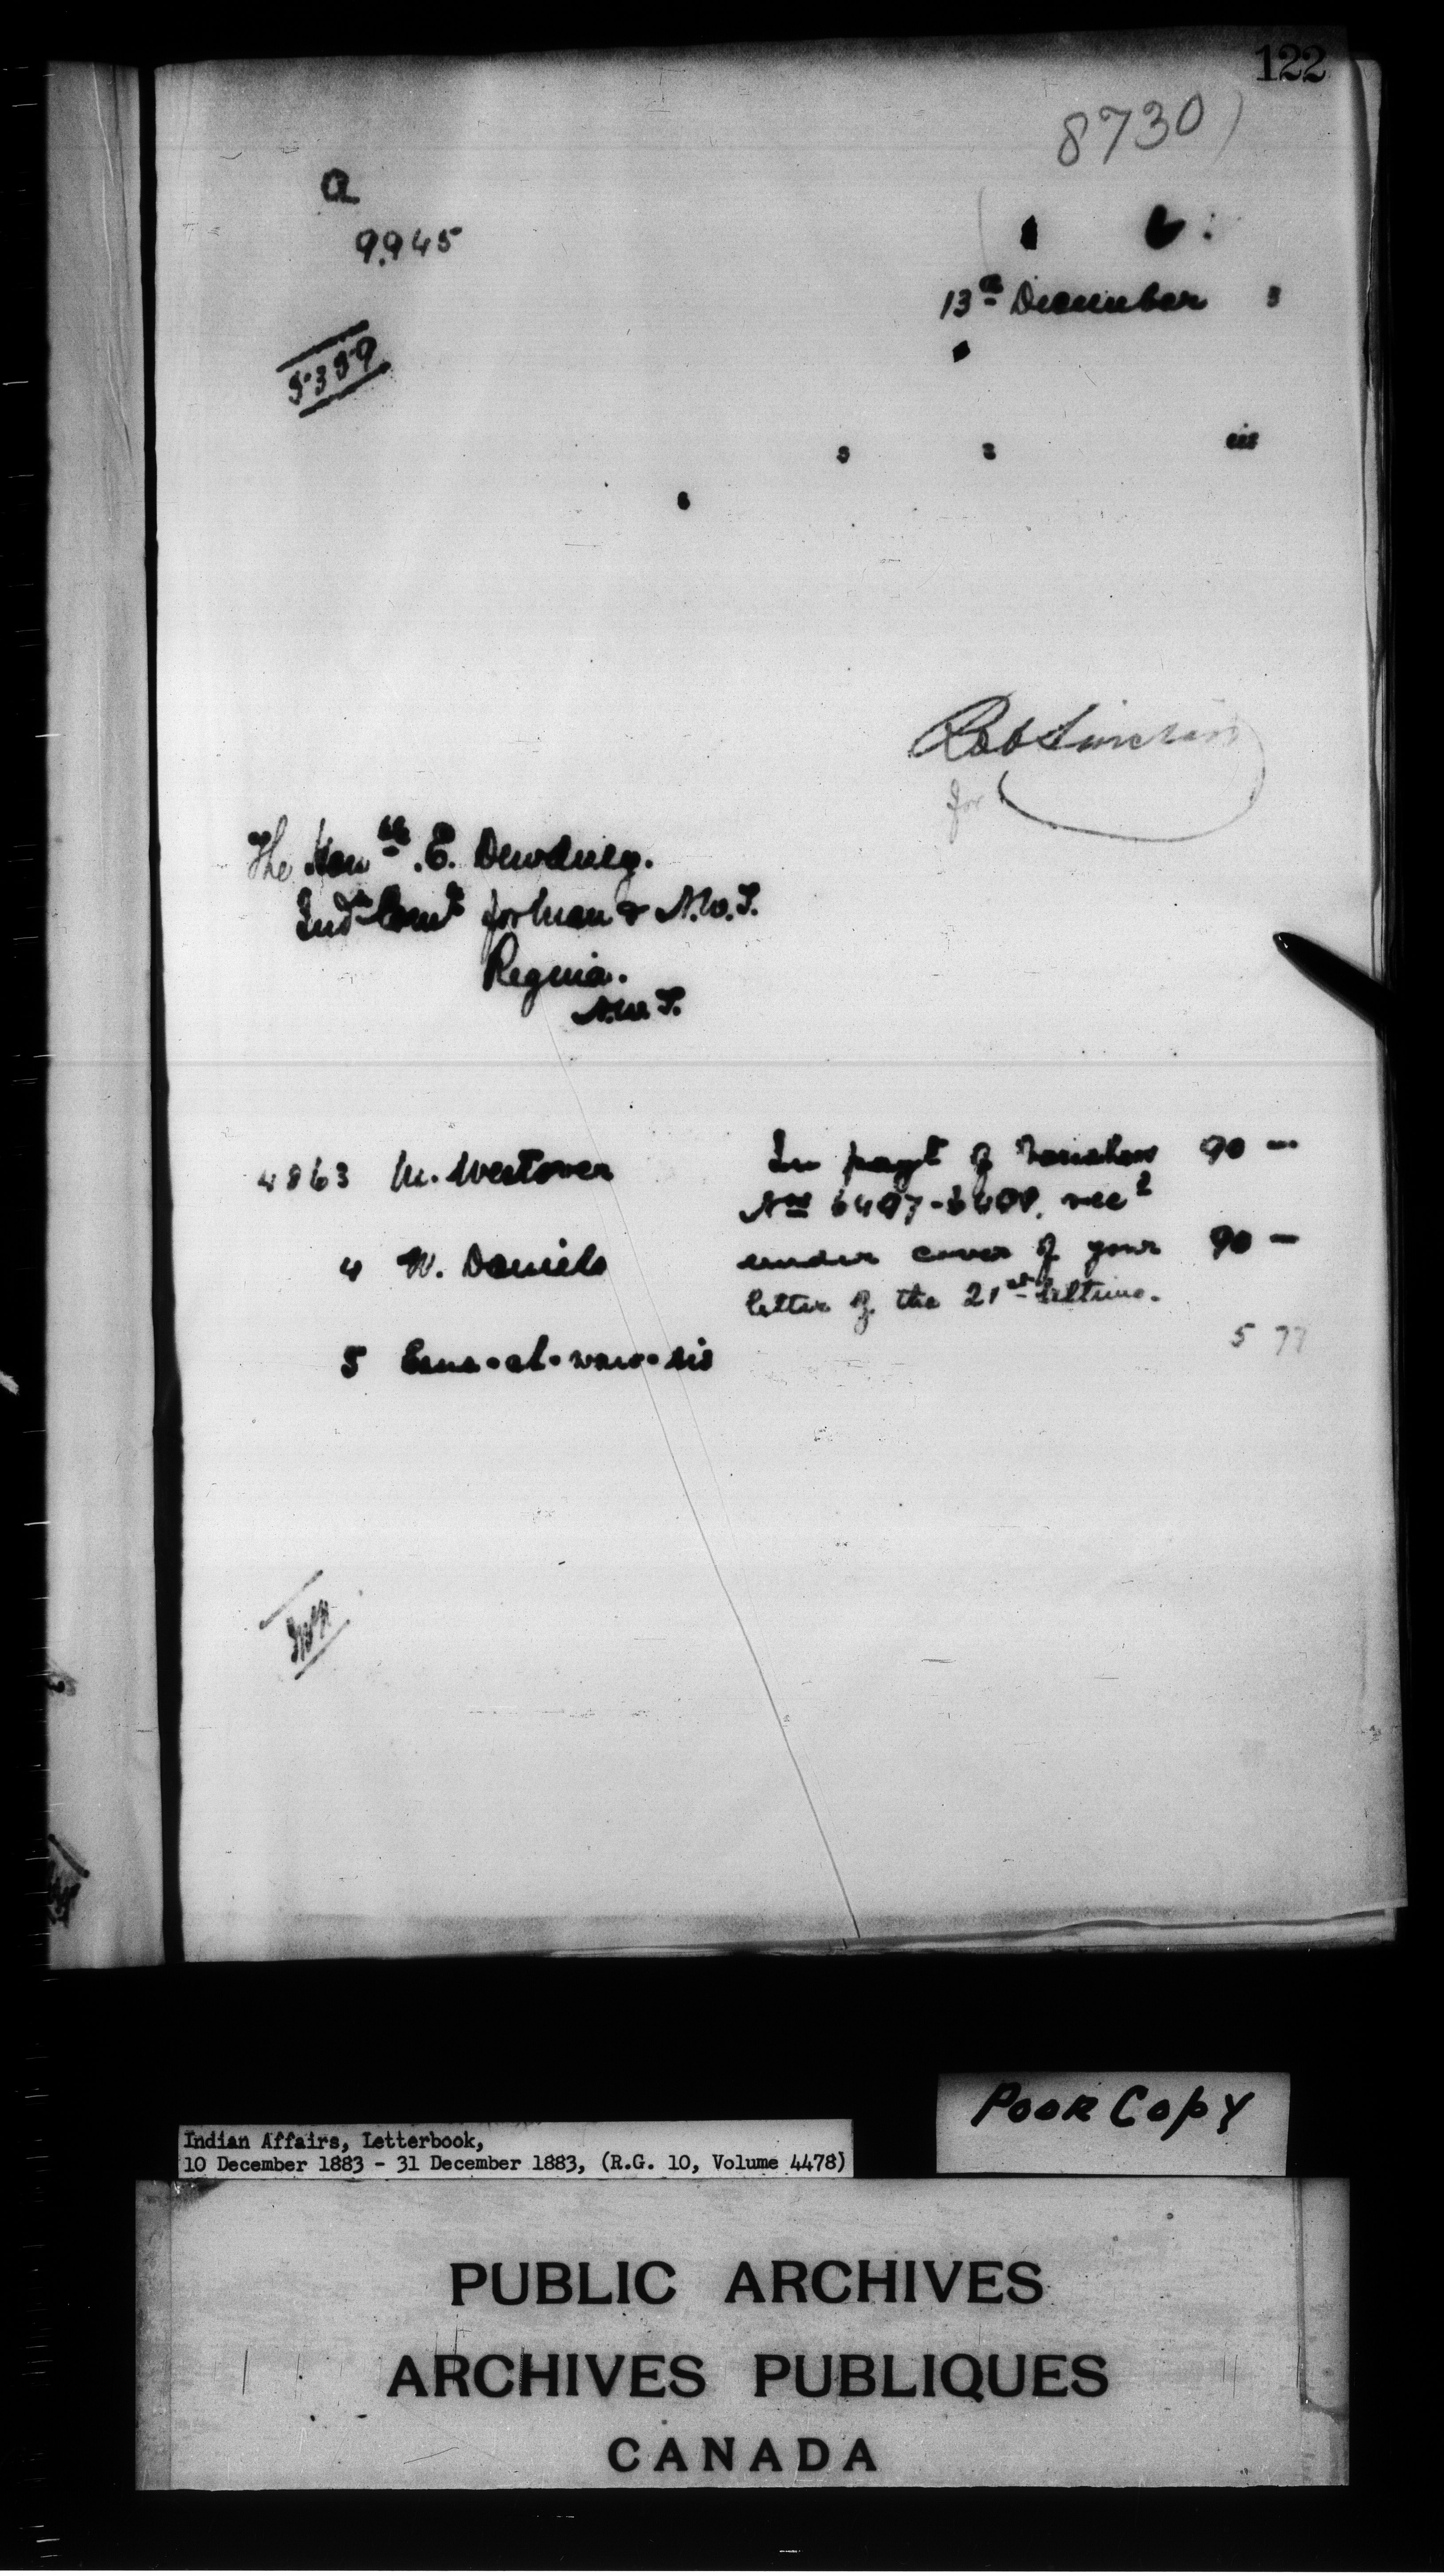 122
8730
a
9945
13th December 3
6
3 2 iii
Rob Sinclair
for
The Honble. E. Dewdney.
Indn Comr for Man & N.W.T.
Regina.
N.W.T.
4863 M. Westover In payt of Vouchers 90 —
Nos 6497-6498. recd
4 W. Daniels under cover of your 90 —
letter of the 21st ultimo.
5 77
5
Poor Copy
Indian Affairs, Letterbook,
10 December 1883 - 31 December 1883, (R.G. 10, Volume 4478)
PUBLIC ARCHIVES
ARCHIVES PUBLIQUES
CANADA